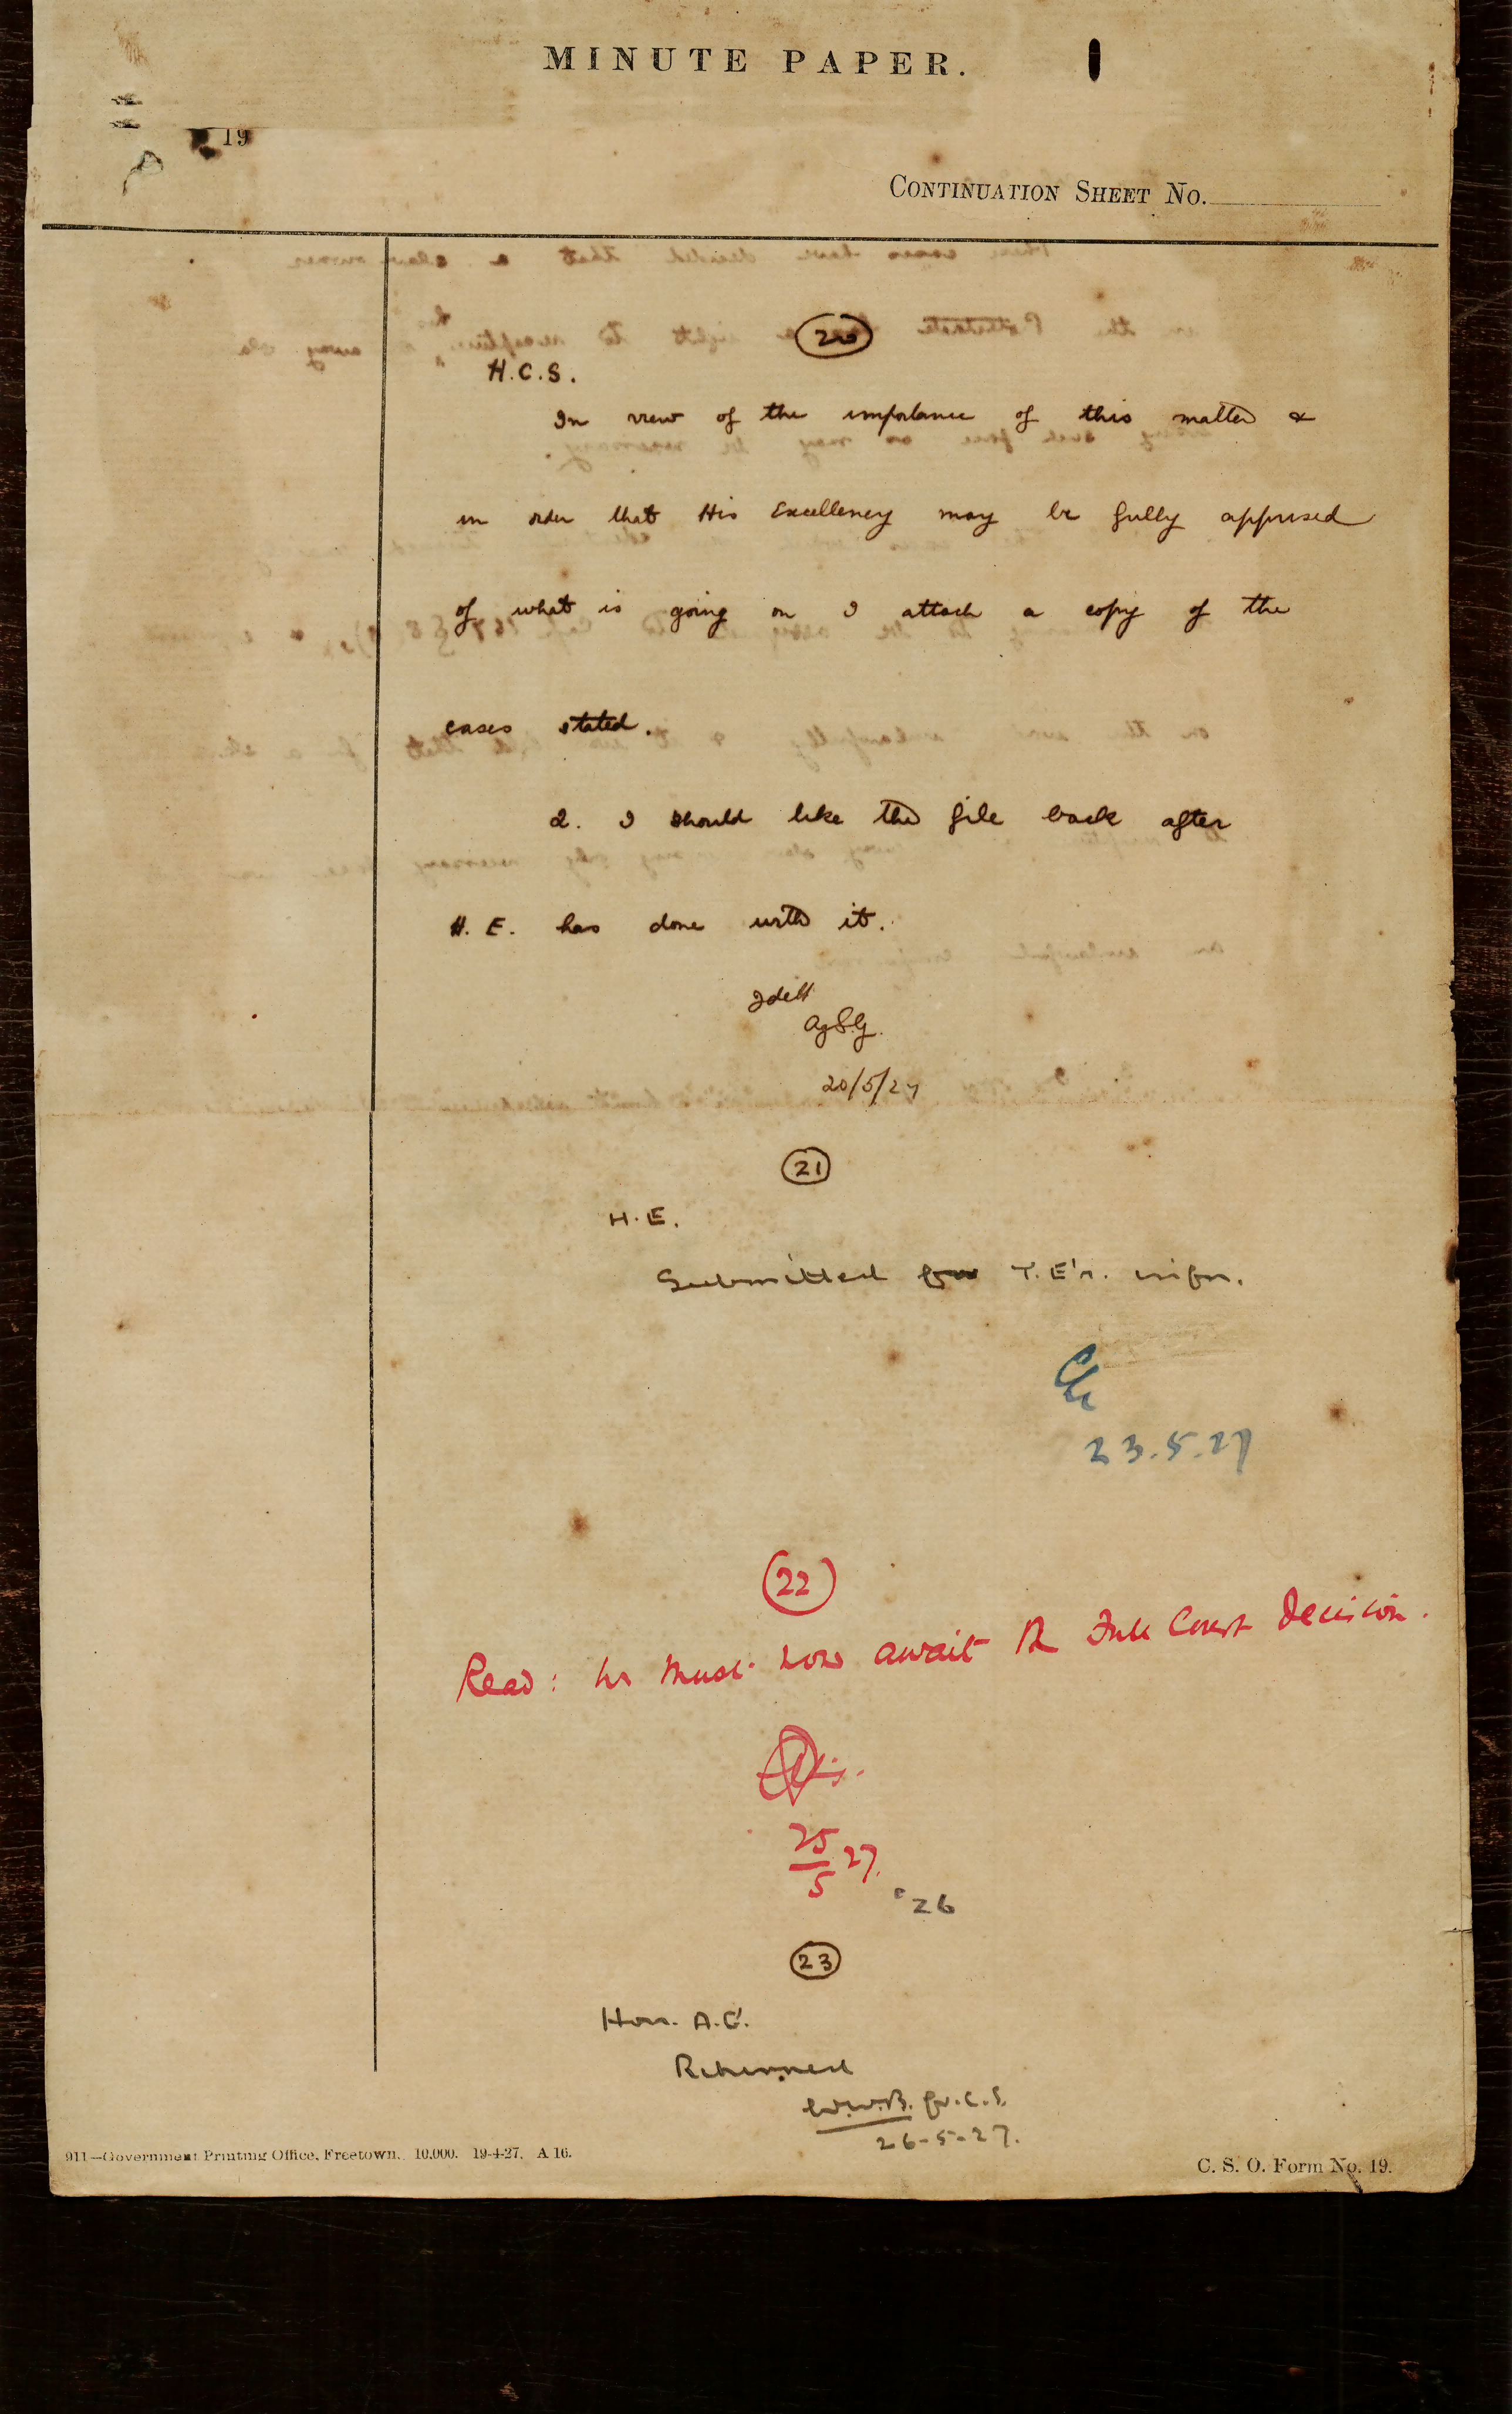 MINUTE PAPER.
19
CONTINUATION SHEET NO.
20
H.C.S.
In view of the importance of this matter &
in order that His Excellency may be fully apprised
of what is going on I attach a copy of the
cases stated.
2. I should like the file back after
H. E. has done with it.
Ag S.G.
20/5/27
21
H.E.
Submitted for Y.E's. infn.
23.5.27
22
Read: We must now await the Full Court Decision.
25/5 27.
26
23
Hon. A.G.
Returned
W.W.B. for C.S.
26-5-27.
911—Government Printing Office, Freetown. 10,000. 19-4-27. A 16.
C. S. O. Form No. 19.